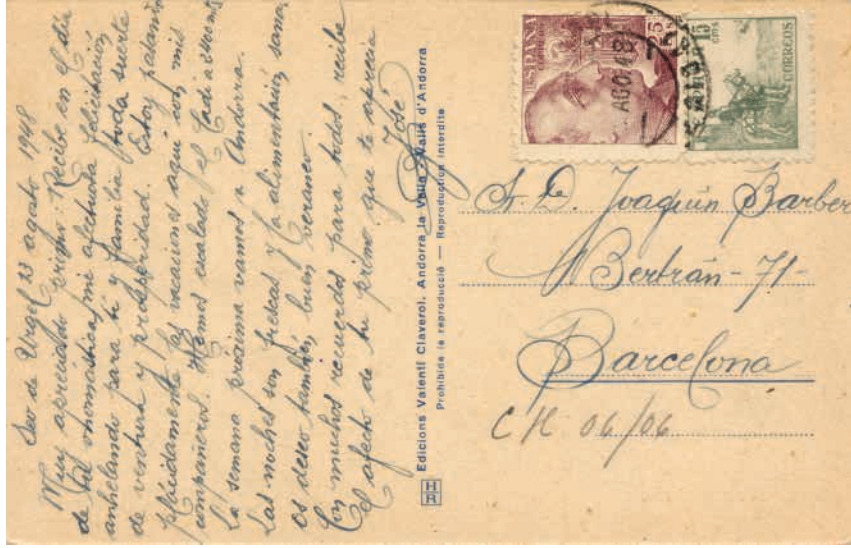 Seo de Urgel 23 agosto 1948
Muy apreciado primo: Recibe en el día
de tu onomástica mi afectuosa felicitación,
anhelando para ti y familia toda suerte
de ventura y prosperidad. Estoy pasando
plácidamente las vacaciones aquí con mis
compañeros. Hemos escalado el Cadí a 2600 m
La semana próxima vamos a Andorra.
Las noches son frescas y la alimentación sana,
os deseo también buen veraneo.
Con muchos recuerdos para todos, recibe
el afecto de tu primo que te aprecia
José
HR
Edicions Valentí Claverol. Andorra la Vella - Valls d'Andorra
Prohibide la reproducció — Reproduction interdite
ESPAÑA
CORREOS
25
AGO 48
15
CTS
CORREOS
Sr. D. Joaquín Barber
Bertrán - 71 -
Barcelona
CH 06/06